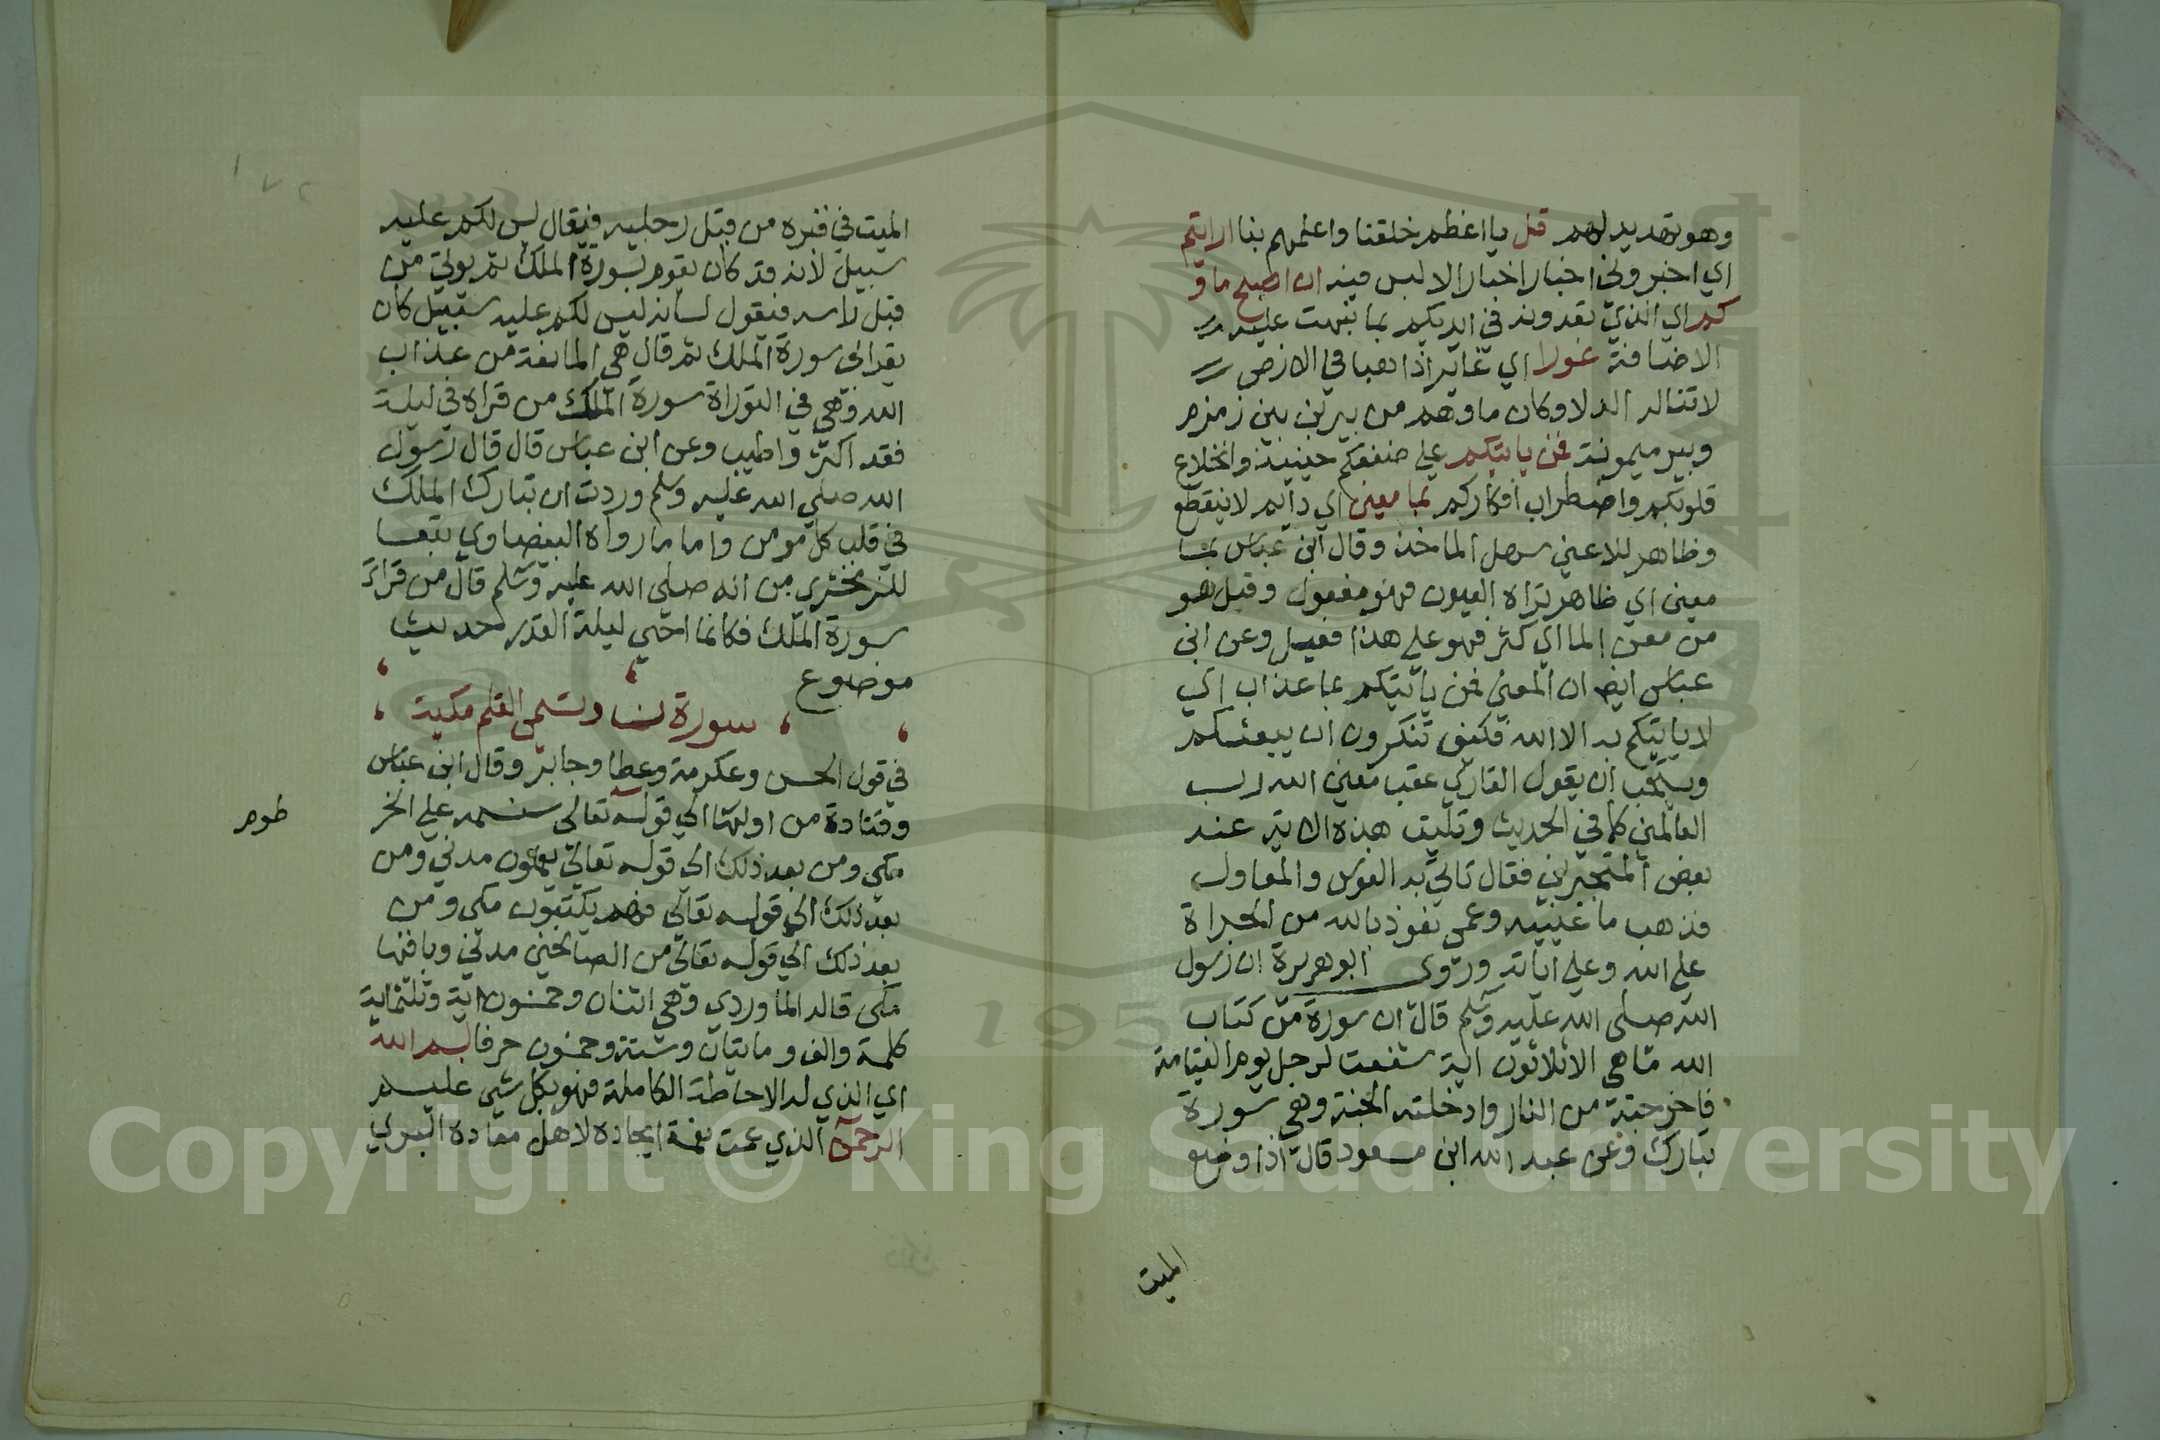 وهو تهديد لهم قل يا اعظم خلقنا واعلمهم بنا ارايتم
اي اخبروني اخبارا لا لبس فيه ان اصبح ماؤ
كم اي الذي تعدونه في ايديكم بما نبهت عليه
الاضافة غورا اي غايرا ذاهبا في الارض
لا تناله الدلا وكان ماوهم من بيرين بير زمزم
وبير ميمونة فمن ياتيكم على ضعفكم حينيذ وانخلاع
قلوبكم واضطراب افكاركم بما معين اي دايم لا ينقطع
وظاهر للاعين سهل الماخذ وقال ابن عباس بما
معين اي ظاهر تراه العيون فهو مفعول وقيل هو
من معن الما اي كثر فهو على هذا فعيل وعن ابن
عباس ايضا ان المعنى فمن ياتيكم بما عذاب اي
لا ياتيكم به الا الله فكيف تنكرون ان يبعثكم
ويستحب ان يقول القاري عقب معين الله رب
العالمين كما في الحديث وتليت هذه الاية عند
بعض المتجبرين فقال تاتي به الفوس والمعاول
فذهب ما عينيه وعمى نعوذ بالله من الجراة
على الله وعلى اياته وروى ابو هريرة ان رسول
الله صلى الله عليه وسلم قال ان سورة من كتاب
الله ما هي الا ثلاثون اية شفعت لرجل يوم القيامة
فاخرجته من النار وادخلته الجنة وهي سورة
تبارك وعن عبد الله ابن مسعود قال اذا وضع
الميت
الميت في قبره من قبل رجليه فيقال ليس لكم عليه
سبيل لانه قد كان يقوم بسورة الملك ثم يوتى من
قبل راسه فيقول لسانه ليس لكم عليه سبيل كان
يقرا لي سورة الملك ثم قال هي المانعة من عذاب
الله وهي في التوراة سورة الملك من قراه في ليلة
فقد اكثر واطيب وعن ابن عباس قال قال رسول
الله صلى الله عليه وسلم وردت ان تبارك الملك
في قلب كل مومن واما ما رواه البيضاوي تبعا
للزمخشري من انه صلى الله عليه وسلم قال من قراء
سورة الملك فكانما احيى ليلة القدر حديث
موضوع
سورة ن وتسمى القلم مكية
في قول الحسن وعكرمة وعطا وجابر وقال ابن عباس
وقتادة من اولها الى قوله تعالى سنسمه على الخر
طوم
مكي ومن بعد ذلك الى قوله تعالى يعلمون مدني ومن
بعد ذلك الى قوله تعالى فهم يكتبون مكي ومن
بعد ذلك الى قوله تعالى من الصالحين مدني وباقيها
مكي قاله الماوردي وهي اثنان وخمسون اية وثلثماية
كلمة والف ومايتان وستة وخمسون حرفا بسم الله
اي الذي له الاحاطة الكاملة فهو بكل شي عليم
الرحمن الذي عمت نعمة ايجاده لاهل معاده البري
١٧٢
1957
Copyright © King Saud University